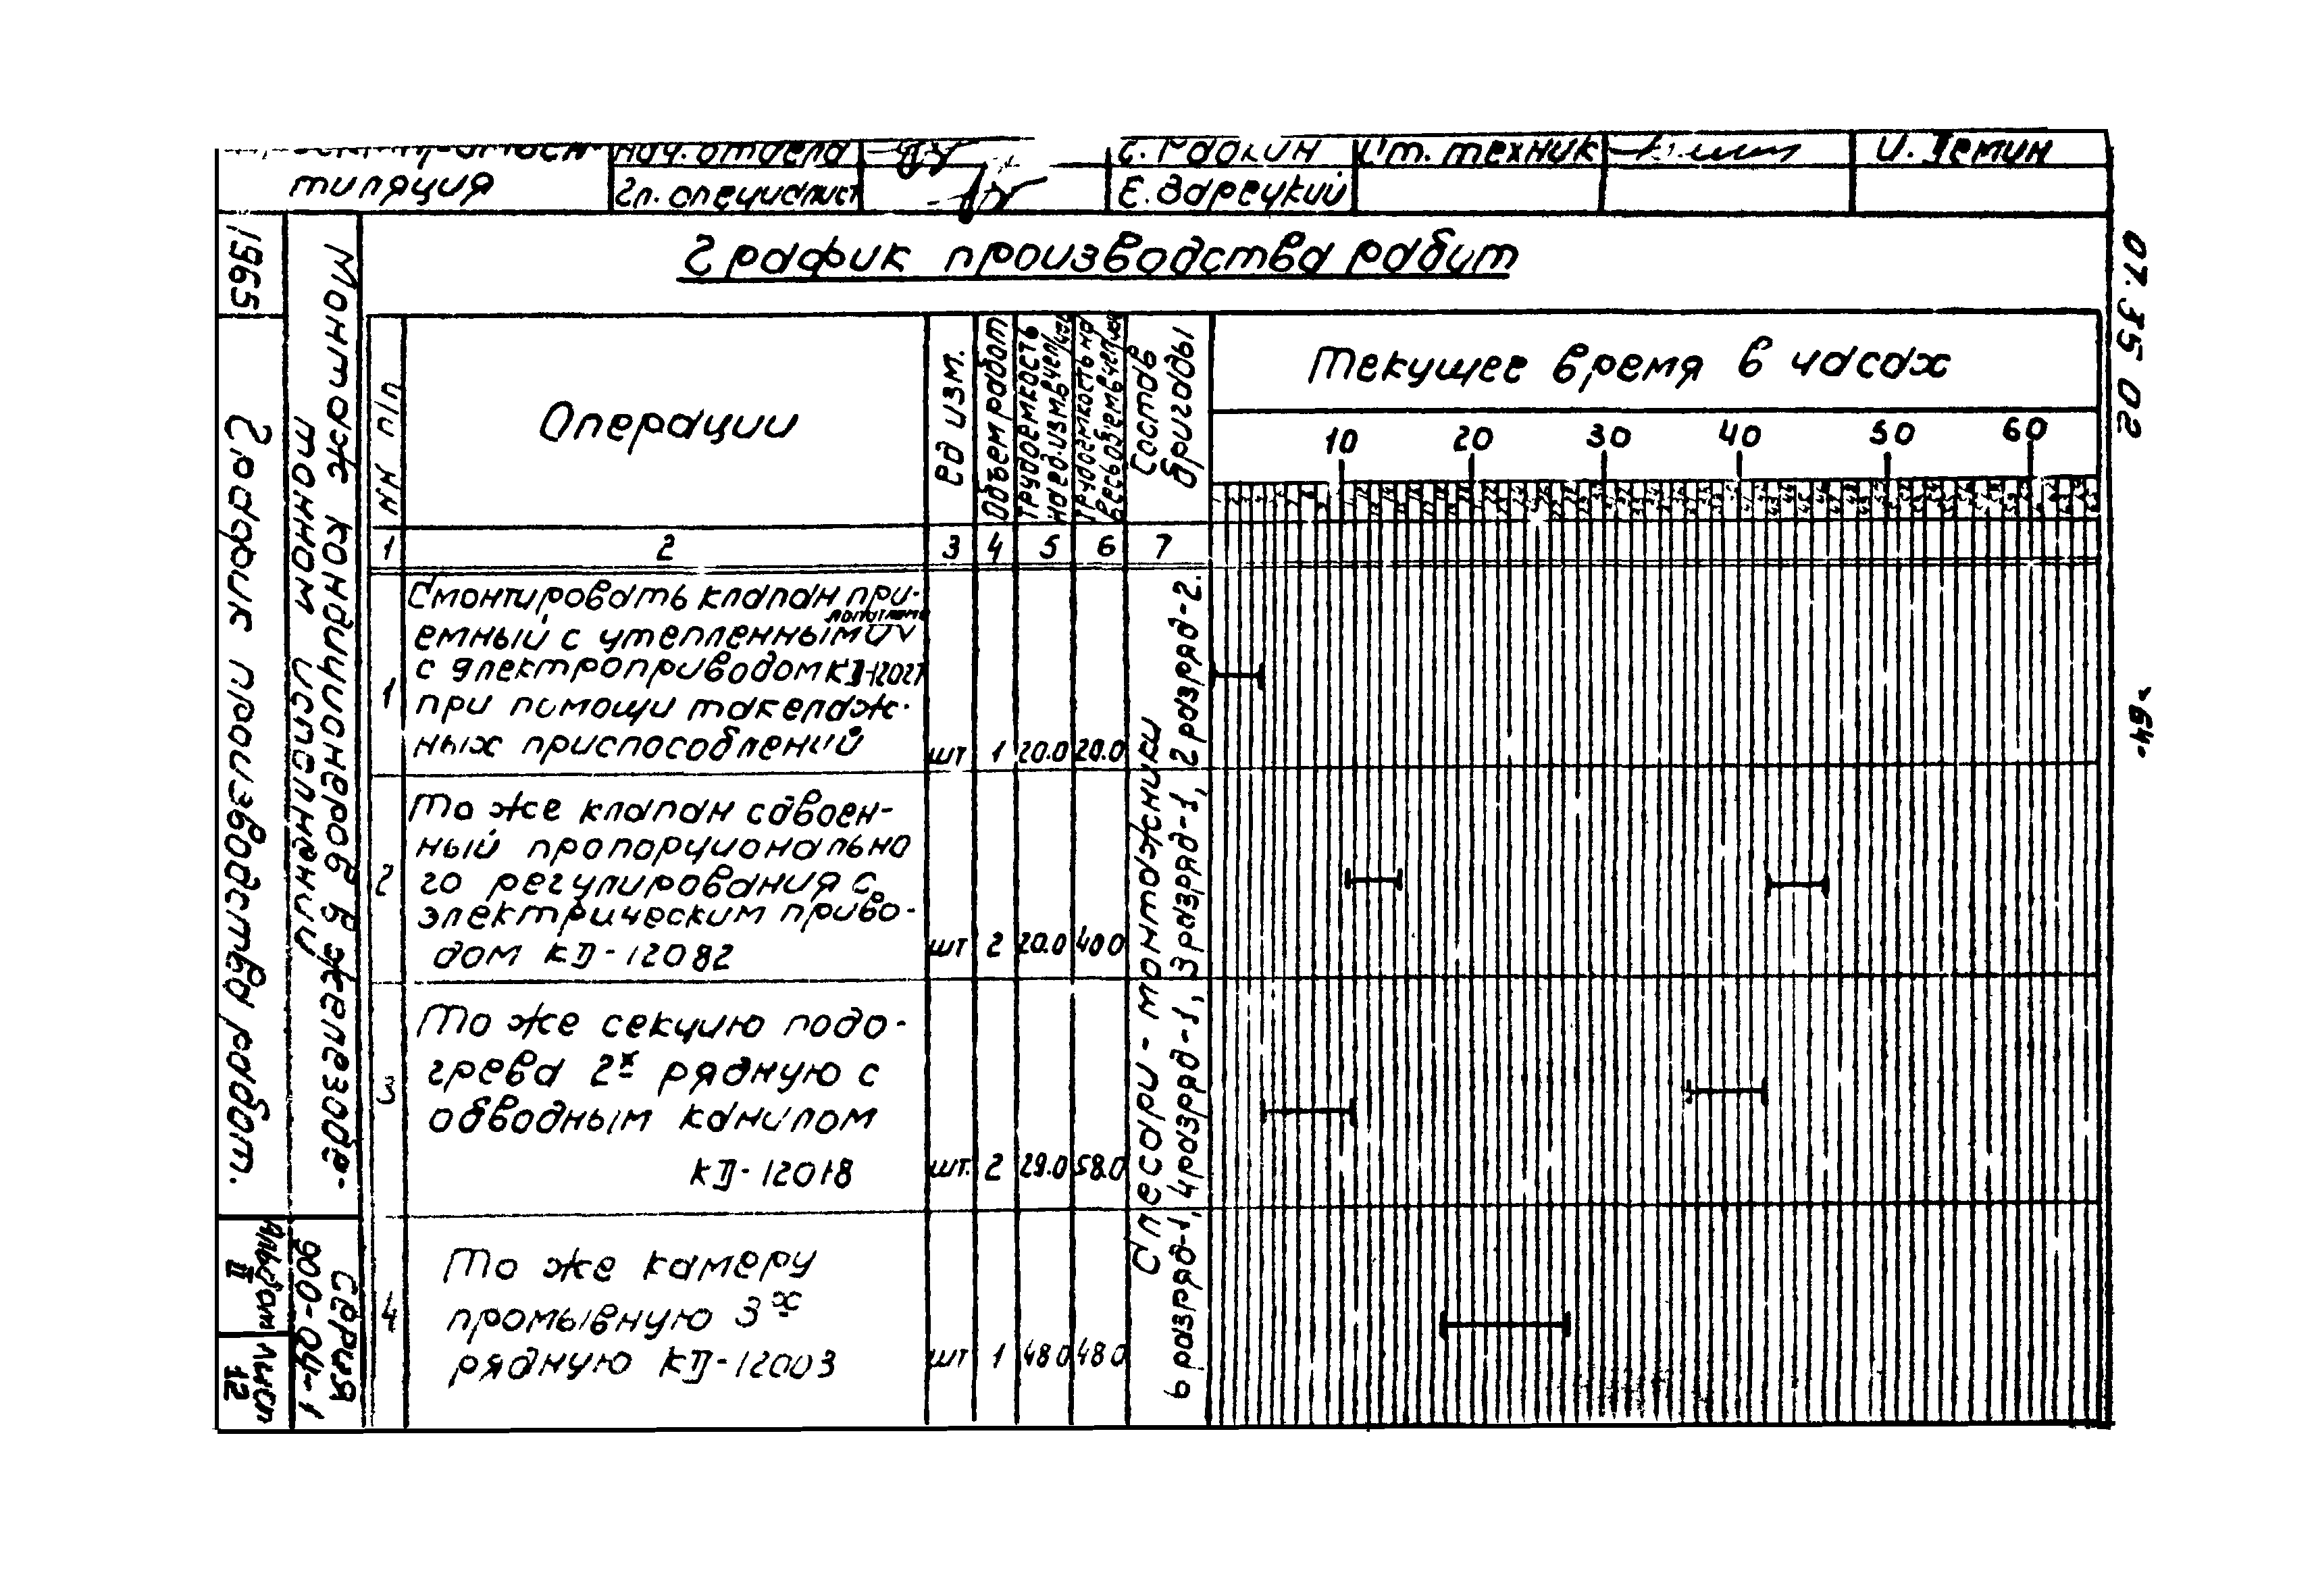 тиляция
Нач. отдела
Гл. специалист
С. Радкин
Е. Зарецкий
Ст. техник
График производства работ
1965
Монтаж кондиционеров в железобе-
тонном исполнении
График производства работ.
Серия
900-04-1
Альбом
II
Лист
12
07.35 02
-64-
NN п/п
Операции
Ед изм.
Объем работ
Трудоемкость
на ед. изм. в чел/час
Трудоемкость на
весь объем в чел/час
Состав
бригады
Текущее время в часах
10 20 30 40 50 60
1 2 3 4 5 6 7
1
Смонтировать клапан при-
лопатками
емный с утепленными
с электроприводом КД-12021
при помощи такелаж-
ных приспособлений
шт 1 20.0 20.0
2
То же клапан сдвоен-
ный пропорционально
го регулирования с
электрическим приво-
дом КД-12082
шт 2 20.0 40 0
3
То же секцию подо-
грева 2х рядную с
обводным каналом
КД-12018
шт. 2 29.0 58.0
4
То же камеру
промывную 3х
рядную КД-12003
шт 1 48 0 48 0
Слесари-монтажники
6 разряд-1, 4 разряд-1, 3 разряд-1, 2 разряд-2.